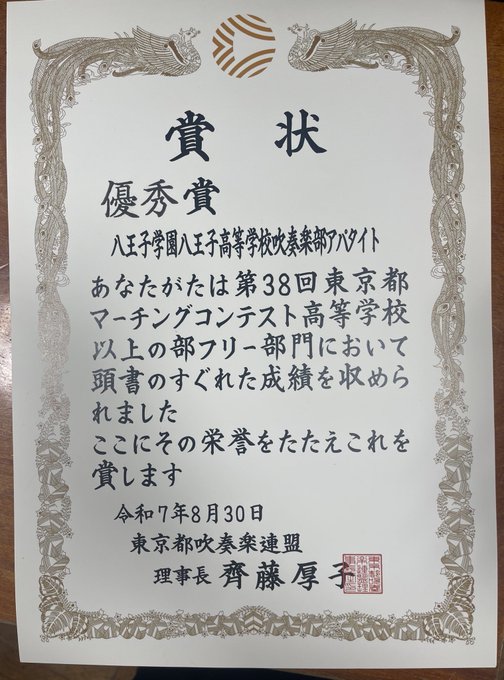 賞状
優秀賞
八王子学園八王子高等学校吹奏楽部アパタイト
あなたがたは第38回東京都
マーチングコンテスト高等学校
以上の部フリー部門において
頭書のすぐれた成績を収めら
れました
ここにその栄誉をたたえこれを
賞します
令和7年8月30日
東京都吹奏楽連盟
理事長 齊藤厚子